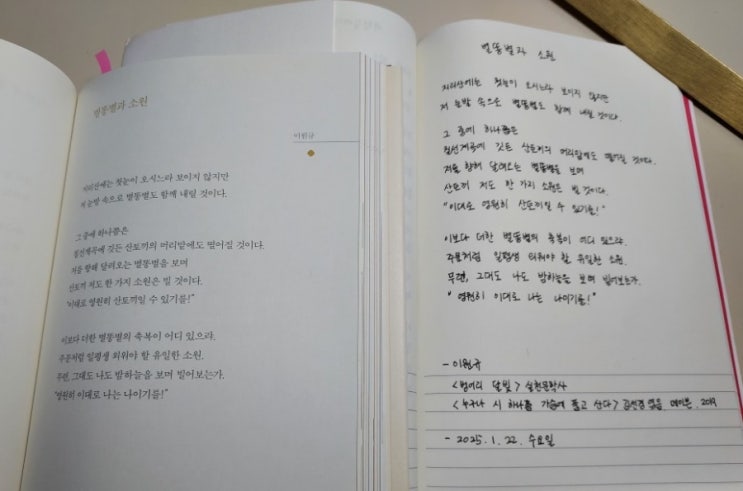 별똥별과 소원
이원규
지리산에는 첫눈이 오시느라 보이지 않지만
저 눈발 속으로 별똥별도 함께 내릴 것이다.
그 중에 하나쯤은
칠선계곡에 깃든 산토끼의 머리맡에도 떨어질 것이다.
저를 향해 달려오는 별똥별을 보며
산토끼 저도 한 가지 소원은 빌 것이다.
"이대로 영원히 산토끼일 수 있기를!"
이보다 더한 별똥별의 축복이 어디 있으랴.
주문처럼 일평생 외워야 할 유일한 소원.
무련, 그대도 나도 밤하늘을 보며 빌어보는가.
"영원히 이대로 나는 나이기를!"
별똥별과 소원
지리산에는 첫눈이 오시느라 보이지 않지만
저 눈발 속으로 별똥별도 함께 내릴 것이다.
그 중에 하나쯤은
칠선계곡에 깃든 산토끼의 머리맡에도 떨어질 것이다.
저를 향해 달려오는 별똥별을 보며
산토끼 저도 한 가지 소원은 빌 것이다.
"이대로 영원히 산토끼일 수 있기를!"
이보다 더한 별똥별의 축복이 어디 있으랴.
주문처럼 일평생 외워야 할 유일한 소원.
무련, 그대도 나도 밤하늘을 보며 빌어보는가.
"영원히 이대로 나는 나이기를!"
- 이원규
<강물의 달빛> 실천문학사
<누구나 시 하나쯤 가슴에 품고 산다> 김선경 엮음. 메이븐. 2019
- 2025. 1. 22. 수요일